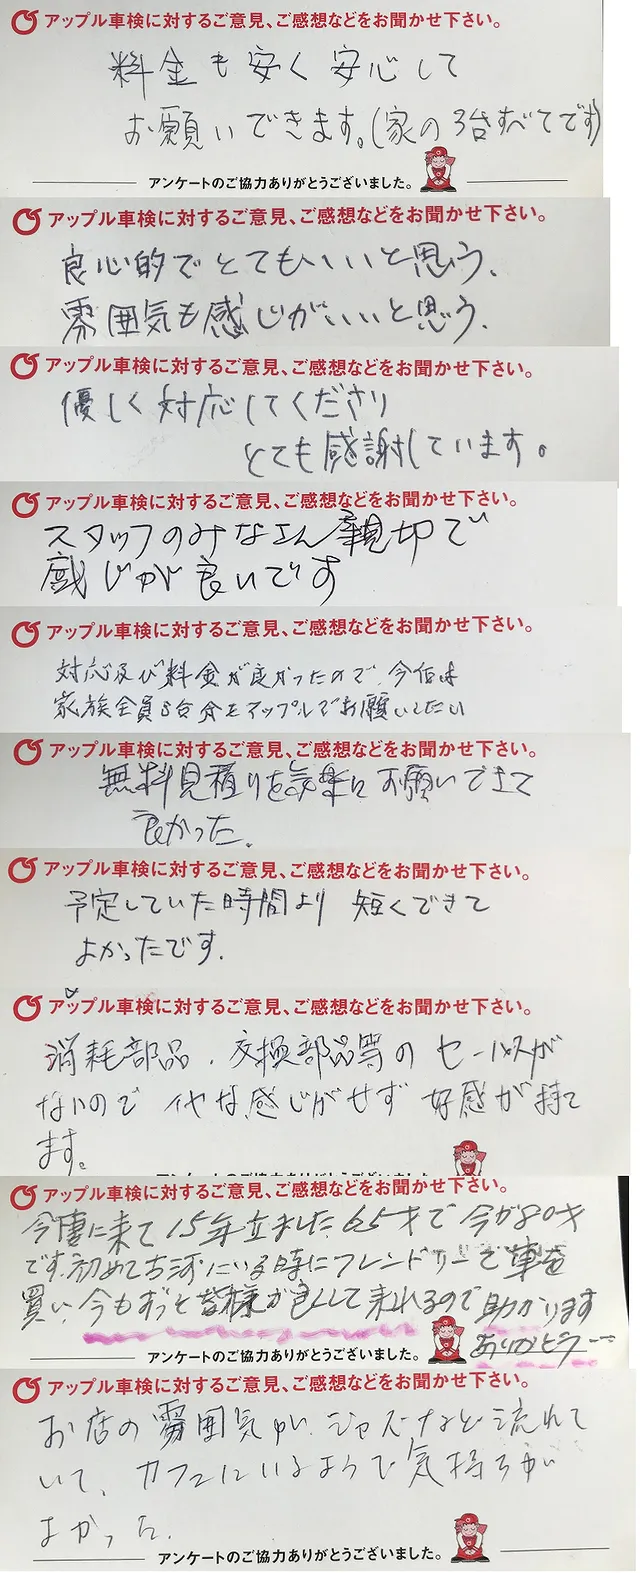 アップル車検に対するご意見、ご感想などをお聞かせ下さい。
料金も安く安心して
お願いできます。(家の3台すべてです)
アンケートのご協力ありがとうございました。
アップル車検に対するご意見、ご感想などをお聞かせ下さい。
良心的でとてもいいと思う、
雰囲気も感じがいいと思う、
アップル車検に対するご意見、ご感想などをお聞かせ下さい。
優しく対応してくださり
とても感謝しています。
アップル車検に対するご意見、ご感想などをお聞かせ下さい。
スタッフのみなさん親切で
感じが良いです
アップル車検に対するご意見、ご感想などをお聞かせ下さい。
対応及び料金が良かったので、今后は
家族全員5台分をアップルでお願いしたい
アップル車検に対するご意見、ご感想などをお聞かせ下さい。
無料見積りを気楽にお願いできて
良かった。
アップル車検に対するご意見、ご感想などをお聞かせ下さい。
予定していた時間より短くできて
よかったです.
アップル車検に対するご意見、ご感想などをお聞かせ下さい。
消耗部品.交換部品等のセールスが
ないのでイヤな感じがせず好感が持て
ます。
アンケートのご協力ありがとうございました
アップル車検に対するご意見、ご感想などをお聞かせ下さい。
今度に来て15年立ました65才で今が80才
です.初めて古河にいる時にフレンドリーで車を
買い今もずっと皆様が良くして来れるので助かります
アンケートのご協力ありがとうございました。
ありがとう
アップル車検に対するご意見、ご感想などをお聞かせ下さい。
お店の雰囲気がい、ジャズなど流れて
いて、カフェにいるようで気持ちが
よかった.
アンケートのご協力ありがとうございました。